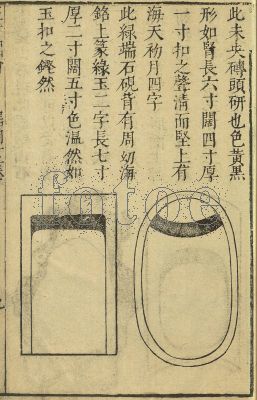 此未央磚頭硏也色黃黑
形如腎長六寸闊四寸厚
一寸扣之聲清而堅上有
海天秋月四字
此緑瑞石硯背有周幼海
銘上篆緑玉二字長七寸
厚二寸闊五寸色温然如
玉扣之鏗然
fotoe